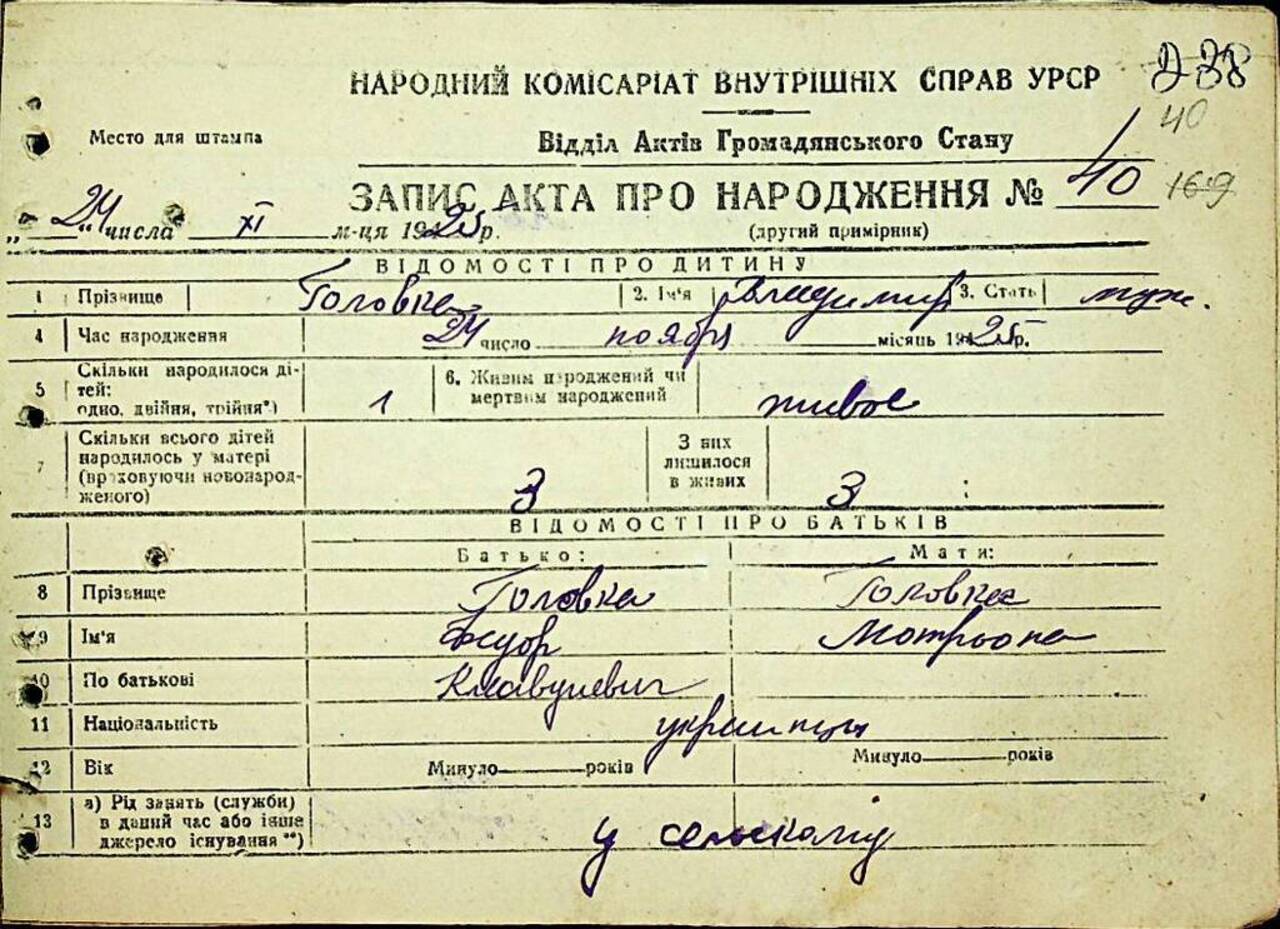 Д-38
НАРОДНИЙ КОМІСАРІАТ ВНУТРІШНІХ СПРАВ УРСР
40
Место для штампа
Відділ Актів Громадянського Стану
ЗАПИС АКТА ПРО НАРОДЖЕННЯ № 40
169
„ 24 “ числа XI м-ця 1925 р.
(другий примірник)
ВІДОМОСТІ ПРО ДИТИНУ
1 Прізвище Головка 2. Ім'я Владимир 3. Стать муж.
4 Час народження 24 число ноября місяць 1925 р.
5 Скільки народилося ді-
тей:
одно, двійня, трійня*) 1
6. Живим народжений чи
мертвим народжений живое
7 Скільки всього дітей
народилось у матері
(враховуючи новонарод-
женого) 3
З них
лишилося
в живих 3
ВІДОМОСТІ ПРО БАТЬКІВ
Батько: Мати:
8 Прізвище Головка Головка
9 Ім'я Федор Мотрьона
10 По батькові
11 Національність украинцы
12 Вік Минуло років Минуло років
13 а) Рід занять (служби)
в даний час або інше
джерело існування **) у сельскому